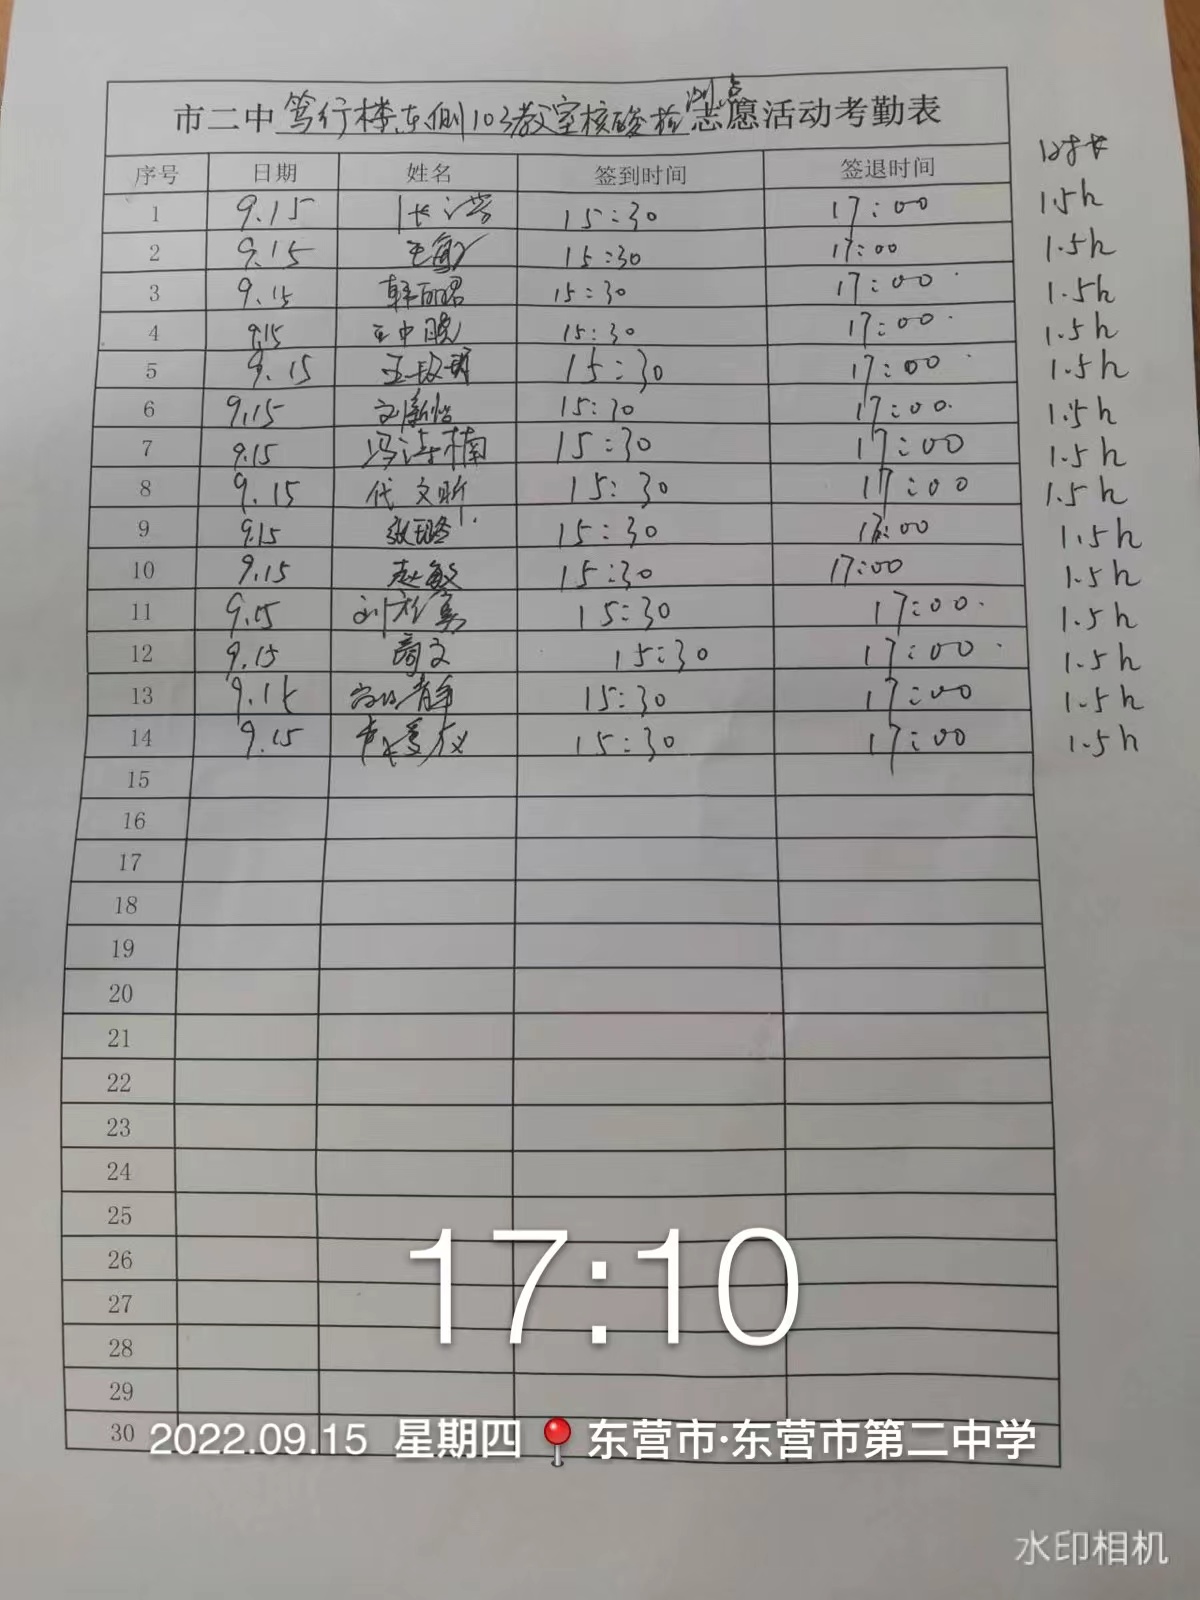 市二中笃行楼东侧103教室核酸检测点志愿活动考勤表
时长
序号 日期 姓名 签到时间 签退时间
1 9.15 15:30 17:00 1.5h
2 9.15 王敏 15:30 17:00 1.5h
3 9.15 15:30 17:00 1.5h
4 9.15 王中晓 15:30 17:00 1.5h
5 9.15 15:30 17:00 1.5h
6 9.15 15:30 17:00 1.5h
7 9.15 15:30 17:00 1.5h
8 9.15 代文昕 15:30 17:00 1.5h
9 9.15 张璐 15:30 17:00 1.5h
10 9.15 赵敏 15:30 17:00 1.5h
11 9.15 15:30 17:00 1.5h
12 9.15 15:30 17:00 1.5h
13 9.15 15:30 17:00 1.5h
14 9.15 15:30 17:00 1.5h
15
16
17
18
19
20
21
22
23
24
25
26
27
28
29
30
17:10
2022.09.15 星期四 东营市·东营市第二中学
水印相机